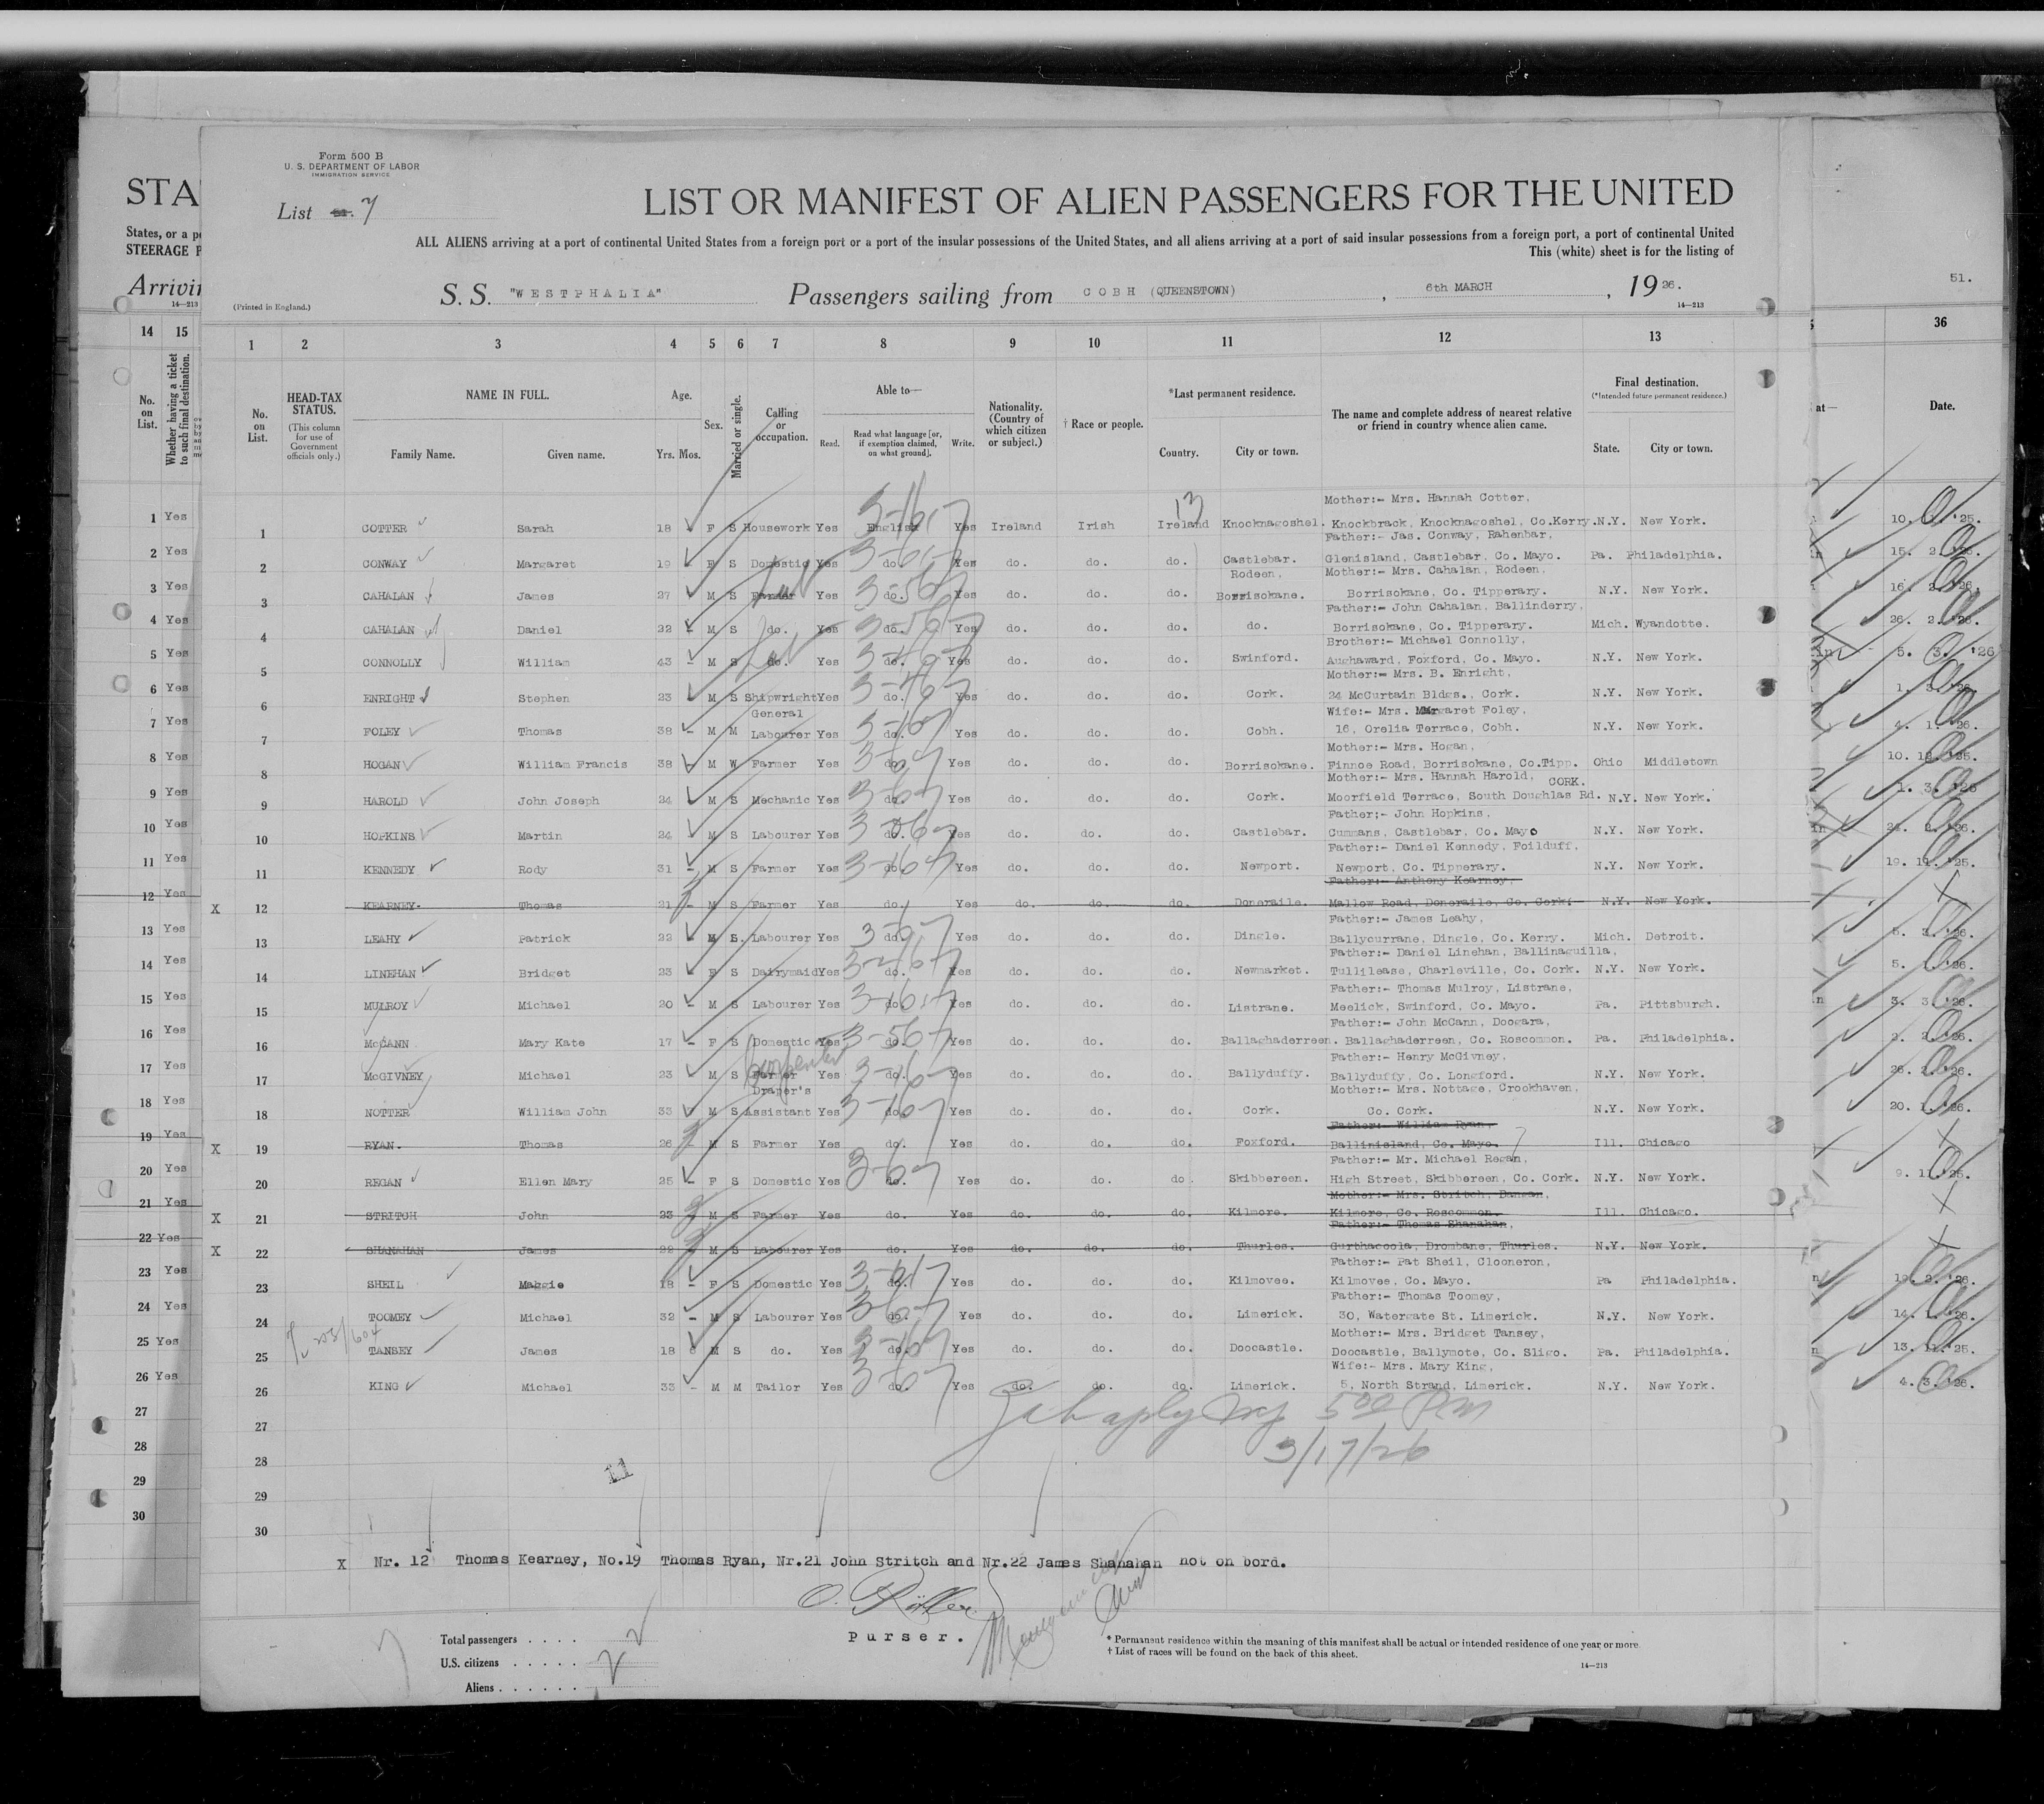 Form 500 B
U. S. DEPARTMENT OF LABOR
IMMIGRATION SERVICE
List 7
LIST OR MANIFEST OF ALIEN PASSENGERS FOR THE UNITED
ALL ALIENS arriving at a port of continental United States from a foreign port or a port of the insular possessions of the United States, and all aliens arriving at a port of said insular possessions from a foreign port, a port of continental United
This (white) sheet is for the listing of
(Printed in England.) S. S. "WESTPHALIA" Passengers sailing from COBH (QUEENSTOWN), 6th MARCH, 1926.
14—213
STA
States, or a p
STEERAGE P
Arrivin
14—213
51.
14 15
No. on List.
Whether having a ticket to such final destination.
1 2 3 4 5 6 7 8 9 10 11 12 13
36
No. on List.
HEAD-TAX STATUS.
(This column for use of Government officials only.)
NAME IN FULL.
Family Name. Given name.
Age.
Yrs. Mos.
Sex.
Married or single.
Calling or occupation.
Able to—
Read. Read what language [or, if exemption claimed, on what ground]. Write.
Nationality. (Country of which citizen or subject.)
† Race or people.
*Last permanent residence.
Country. City or town.
The name and complete address of nearest relative or friend in country whence alien came.
Final destination.
(*Intended future permanent residence.)
State. City or town.
at—
Date.
Mother:- Mrs. Hannah Cotter,
1 Yes 1 COTTER Sarah 18 - F S Housework Yes English Yes Ireland Irish Ireland Knocknagoshel. Knockbrack, Knocknagoshel, Co.Kerry. N.Y. New York.
Father:- Jas. Conway, Rahenbar,
2 Yes 2 CONWAY Margaret 19 F S Domestic Yes do. Yes do. do. do. Castlebar. Glenisland, Castlebar, Co. Mayo. Pa. Philadelphia.
Rodeen, Mother:- Mrs. Cahalan, Rodeen,
3 Yes 3 CAHALAN James 27 M S Farmer Lab Yes do. Yes do. do. do. Borrisokane. Borrisokane, Co. Tipperary. N.Y. New York.
Father:- John Cahalan, Ballinderry,
4 Yes 4 CAHALAN Daniel 22 - M S do. Yes do. Yes do. do. do. do. Borrisokane, Co. Tipperary. Mich. Wyandotte.
Brother:- Michael Connolly,
5 Yes 5 CONNOLLY William 43 - M S do. Lab Yes do. Yes do. do. do. Swinford. Aughaward, Foxford, Co. Mayo. N.Y. New York.
Mother:- Mrs. B. Enright,
6 Yes 6 ENRIGHT Stephen 23 M S Shipwright Yes do. Yes do. do. do. Cork. 24 McCurtain Bldgs., Cork. N.Y. New York.
General Wife:- Mrs. Margaret Foley,
7 Yes 7 FOLEY Thomas 38 - M M Labourer Yes do. Yes do. do. do. Cobh. 16, Orelia Terrace, Cobh. N.Y. New York.
Mother:- Mrs. Hogan,
8 Yes 8 HOGAN William Francis 38 - M W Farmer Yes do. Yes do. do. do. Borrisokane. Finnoe Road, Borrisokane, Co.Tipp. Ohio Middletown
Mother:- Mrs. Hannah Harold, CORK.
9 Yes 9 HAROLD John Joseph 24 M S Mechanic Yes do. Yes do. do. do. Cork. Moorfield Terrace, South Doughlas Rd. N.Y. New York.
Father;- John Hopkins,
10 Yes 10 HOPKINS Martin 24 M S Labourer Yes do. Yes do. do. do. Castlebar. Cummans, Castlebar, Co. Mayo N.Y. New York.
Father:- Daniel Kennedy, Foilduff,
11 Yes 11 KENNEDY Rody 31 - M S Farmer Yes do. Yes do. do. do. Newport. Newport, Co. Tipperary. N.Y. New York.
Father:- Anthony Kearney,
12 Yes X 12 KEARNEY. Thomas 21 - M S Farmer Yes do. Yes do. do. do. Doneraile. Mallow Road, Doneraile, Co. Cork. N.Y. New York.
Father:- James Leahy,
13 Yes 13 LEAHY Patrick 22 - M S. Labourer Yes do. Yes do. do. do. Dingle. Ballycurrane, Dingle, Co. Kerry. Mich. Detroit.
Father:- Daniel Linehan, Ballinaguilla,
14 Yes 14 LINEHAN Bridget 23 F S Dairymaid Yes do. Yes do. do. do. Newmarket. Tullilease, Charleville, Co. Cork. N.Y. New York.
Father:- Thomas Mulroy, Listrane,
15 Yes 15 MULROY Michael 20 - M S Labourer Yes do. Yes do. do. do. Listrane. Meelick, Swinford, Co. Mayo. Pa. Pittsburgh.
Father:- John McCann, Doogara,
16 Yes 16 McCANN Mary Kate 17 - F S Domestic Yes do. Yes do. do. do. Ballaghaderreen. Ballaghaderreen, Co. Roscommon. Pa. Philadelphia.
Father:- Henry McGivney,
17 Yes 17 McGIVNEY Michael 23 M S Farmer Carpenter Yes do. Yes do. do. do. Ballyduffy. Ballyduffy, Co. Longford. N.Y. New York.
Draper's Mother:- Mrs. Nottage, Crookhaven,
18 Yes 18 NOTTER William John 33 M S Assistant Yes do. Yes do. do. do. Cork. Co. Cork. N.Y. New York.
Father:- William Ryan,
19 Yes X 19 RYAN. Thomas 26 - M S Farmer Yes do. Yes do. do. do. Foxford. Ballinisland, Co. Mayo. Ill. Chicago
Father:- Mr. Michael Regan,
20 Yes 20 REGAN Ellen Mary 25 - F S Domestic Yes do. Yes do. do. do. Skibbereen. High Street, Skibbereen, Co. Cork. N.Y. New York.
Mother:- Mrs. Stritch, Dangan,
21 Yes X 21 STRITCH John 23 M S Farmer Yes do. Yes do. do. do. Kilmore. Kilmore, Co. Roscommon. Ill. Chicago.
Father:- Thomas Shanahan,
22 Yes X 22 SHANAHAN James 22 M S Labourer Yes do. Yes do. do. do. Thurles. Gurthacoola, Drombane, Thurles. N.Y. New York.
Father:- Pat Sheil, Clooneron,
23 Yes 23 SHEIL Maggie 18 - F S Domestic Yes do. Yes do. do. do. Kilmovee. Kilmovee, Co. Mayo. Pa Philadelphia.
Father:- Thomas Toomey,
24 Yes 24 TOOMEY Michael 32 - M S Labourer Yes do. Yes do. do. do. Limerick. 30, Watergate St. Limerick. N.Y. New York.
Mother:- Mrs. Bridget Tansey,
25 Yes 25 TANSEY James 18 6 M S do. Yes do. Yes do. do. do. Doocastle. Doocastle, Ballymote, Co. Sligo. Pa. Philadelphia.
Wife:- Mrs. Mary King,
26 Yes 26 KING Michael 33 - M M Tailor Yes do. Yes do. do. do. Limerick. 5, North Strand, Limerick. N.Y. New York.
27 27
28 28
3/17/26
29 29
11
30 30
X Nr. 12 Thomas Kearney, No.19 Thomas Ryan, Nr.21 John Stritch and Nr.22 James Shanahan not on bord.
Purser.
Total passengers . . . .
U.S. citizens . . . . .
Aliens . . . . . .
* Permanent residence within the meaning of this manifest shall be actual or intended residence of one year or more.
† List of races will be found on the back of this sheet.
14—213